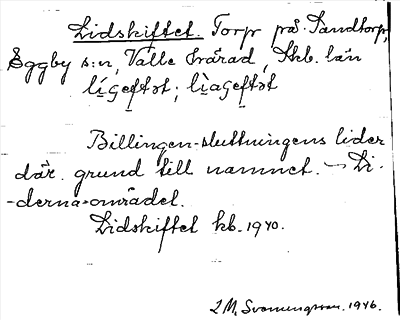 Lidskiftet. Torp på Sandtorp,
Eggby s:n, Valle härad, Skb. län
lígeftət; lìageftət
Billingen-sluttningens lider
där grund till namnet. — Li-
-derna-området.
Lidskiftet kb. 1940.
L M. Svennungsson. 1946.